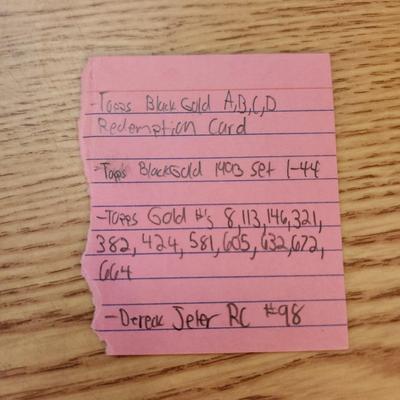 -Topps Black Gold A,B,C,D
Redemption Card
-Topps BlackGold 1993 Set 1-44
-Topps Gold #'s 8,113,146,321,
382, 424, 581, 605, 632, 672,
664
-Dereck Jeter RC #98